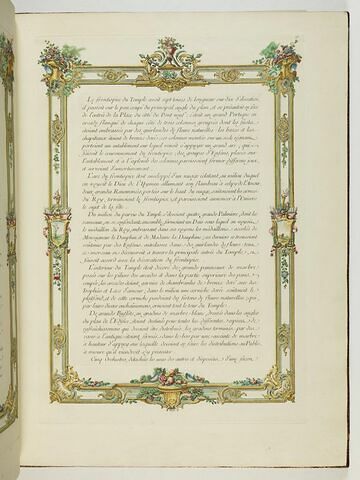 Le frontispice du Temple avoit sept toises de longueur sur dix d'élévation,
il posoit sur le pan coupé du principal angle du plan, et se présentoit en face
de l'entrée de la Place du côté du Pont neuf; c'étoit un grand Portique en
arcade flanqué de chaque côté de trois colonnes groupées dont les fusts
étoient embrassés par des guirlandes de fleurs naturelles; les bases et les
chapiteaux étoient de bronze doré: ces colonnes montées sur un seul
portoient un entablement sur lequel venoit s'appuyer un grand arc, qui
faisoit le couronnement du frontispice; des groupes d'Enfans placés sur
l'entablement et à l'aplomb des colonnes paroissoient former différens jeux,
et servoient d'amortissement.
L'arc du frontispice étoit enveloppé d'un nuage éclatant, au milieu duquel
on voyoit le Dieu de l'Hymen allumant son flambeau à celuy de l'Amour
deux grandes Renommées portées sur le haut du nuage, soutenoient les armes
du Roy, terminoient le frontispice, et paroissoient annoncer à l'Univers
le sujet de la fête.
Du milieu du parvis du Temple s'élevoient quatre grands Palmiers, dont les
rameaux, en se confondant ensemble, formoient un Dais sous lequel on voyoit
le médaillon du Roy, embrassant dans ses rayons les médaillons accolés de
Monseigneur le Dauphin et de Madame la Dauphine; ces derniers se trouvoient
soutenus par des Enfans entrelacés dans des guirlandes de fleurs: tous
ce morceau se découvroit à travers la principale entrée du Temple,
faisoit accord avec la décoration du frontispice.
L'intérieur du Temple étoit décoré de grands panneaux de marbre
posés sur les piliers des arcades et dans la partie supérieure des pans
coupés, les arcades étoient garnies de chambranles de bronze doré aux
Dauphins et Lacs d'amour, dans le milieu une corniche dorée soutenoit le
plafond, et de cette corniche pendoient des festons de fleurs naturelles qui,
par leurs divers enchaînemens, ornoient tout le tour du Temple.
De grands Buffets, en gradins de marbre blanc, posés dans les angles
du plan de l'Édifice, étoient destinés pour toutes les différentes espèces de
rafraîchissemens qui devoient être distribués; les gradins terminés par des
vases à l'antique étoient fermés dans le bas par une enceinte de marbre
à hauteur d'appuy sur laquelle devoient se faire les distributions au Public
à mesure qu'il viendroit s'y présenter.
Cinq Orchestres, détachés les uns des autres et disposés, d'une façon,